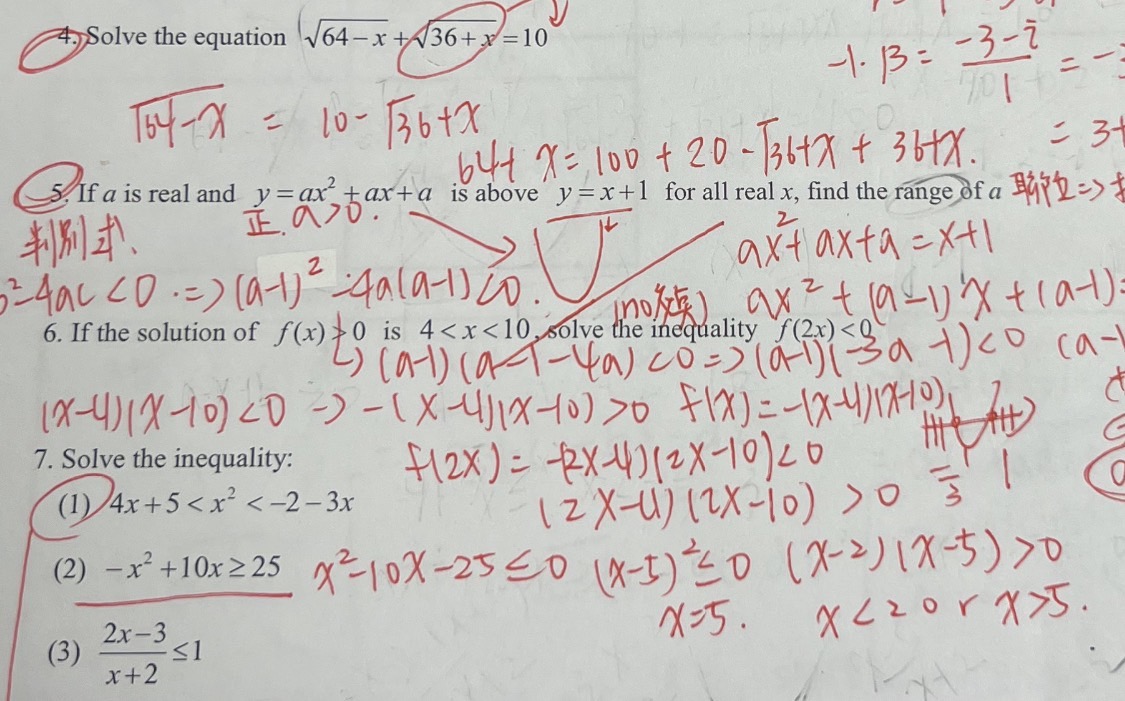 4. Solve the equation √64−x + √36+x = 10
-1·β = -3-i/1 = -
√64-x = 10-√36+x
64+x=100+20-√36+x+36+x.
= 3+
5. If a is real and y=ax²+ax+a is above y=x+1 for all real x, find the range of a
正. a>0.
判別式、
ax²+ax+a=x+1
b²-4ac<0.=>(a-1)²-4a(a-1)<0.
ax²+(a-1)x+(a-1)=
6. If the solution of f(x)>0 is 4<x<10, solve the inequality f(2x)<0
↳(a-1)(a-1-4a)<0=>(a-1)(-3a-1)<0 (a-
(x-4)(x-10)<0 -> -(x-4)(x-10)>0 f(x)=-(x-4)(x-10)
7. Solve the inequality:
f(2x)=-(2x-4)(2x-10)<0
-1/3 1
(1) 4x+5<x²<−2−3x
(2x-4)(2x-10)>0
(2) −x²+10x≥25 x²-10x-25≤0 (x-5)²≤0 (x-2)(x-5)>0
x=5. x<2 or x>5.
(3) 2x−3/x+2 ≤1